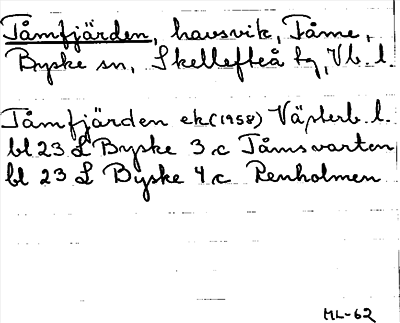 Tåmfjärden, havsvik, Tåme,
Byske sn, Skellefteå tg, Vb. l.
Tåmfjärden ek (1958) Västerb. l.
bl 23 L Byske 3 c Tåmsvarten
bl 23 L Byske 4 c Renholmen
ML-62